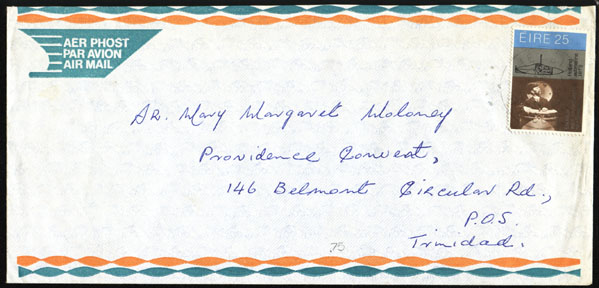 AER PHOST
PAR AVION
AIR MAIL
EIRE 25
Sr. Mary Margaret Moloney
Providence Convent,
146 Belmont Circular Rd.,
P.O.S.
Trinidad.
75